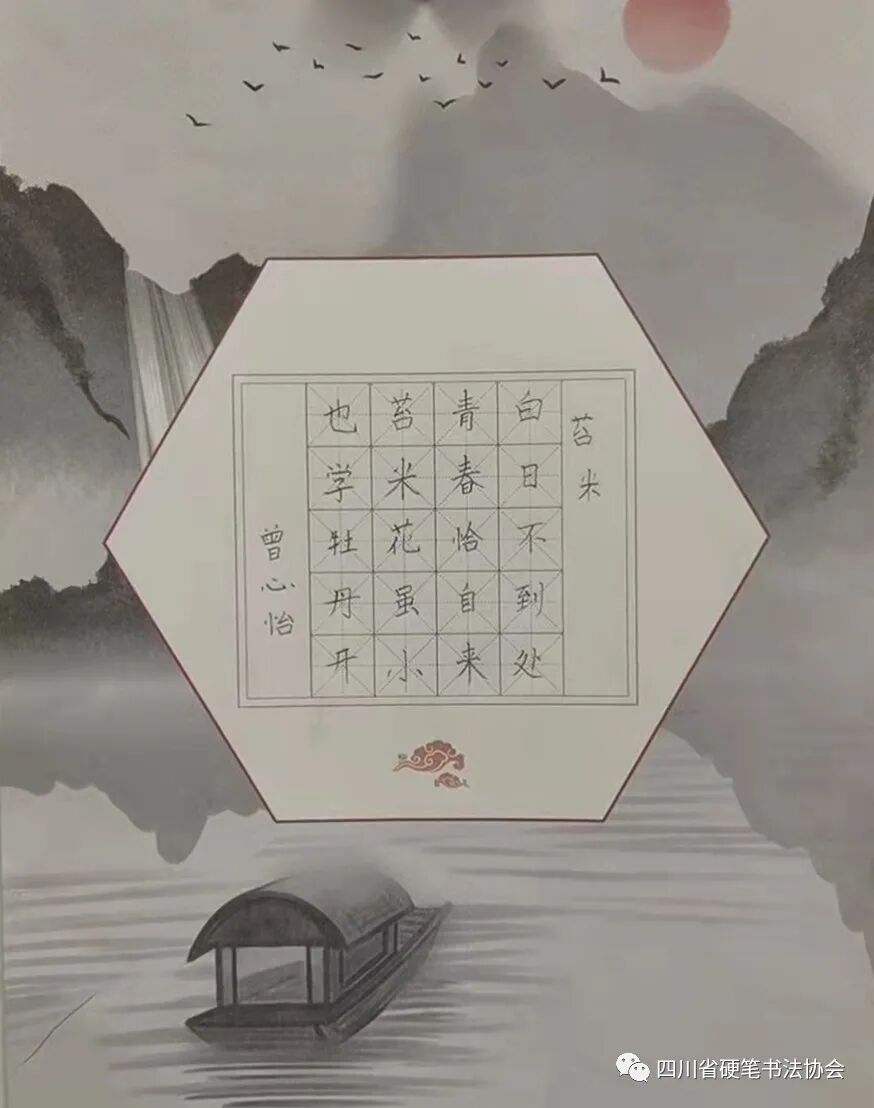 苔米
白日不到处
青春恰自来
苔米花虽小
也学牡丹开
曾心怡
四川省硬笔书法协会